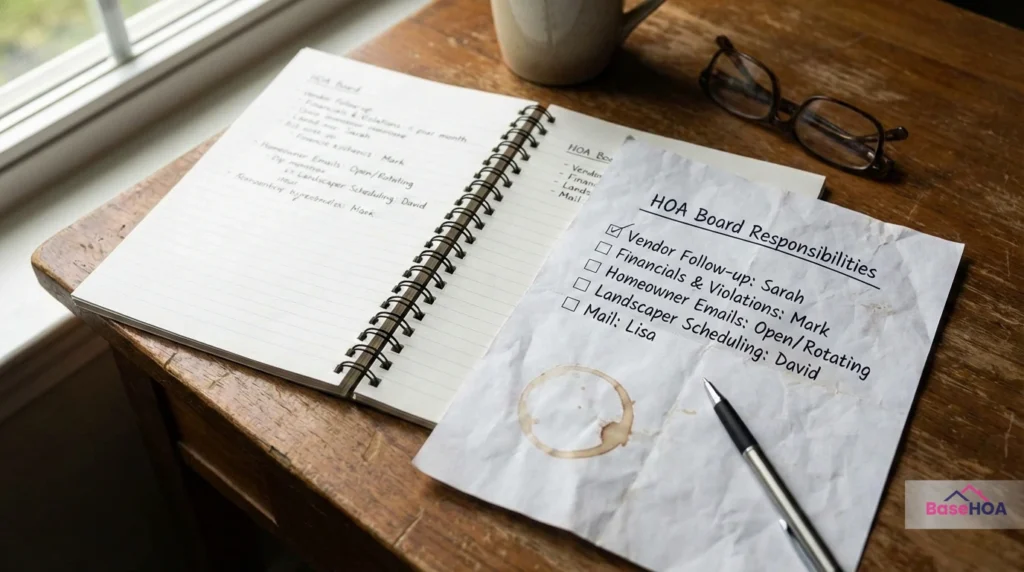 HOA Board
Vendor Follow-up
Financials & Violations
Mark
Homeowner Emails: Open/Rotating
Landscaper Scheduling: David
Mark
HOA Bo
- Vendo
- Finan
- Lands
- Mail
HOA Board Responsibilities
Vendor Follow-up: Sarah
Financials & Violations: Mark
Homeowner Emails: Open/Rotating
Landscaper Scheduling: David
Mail: Lisa
BaseHOA